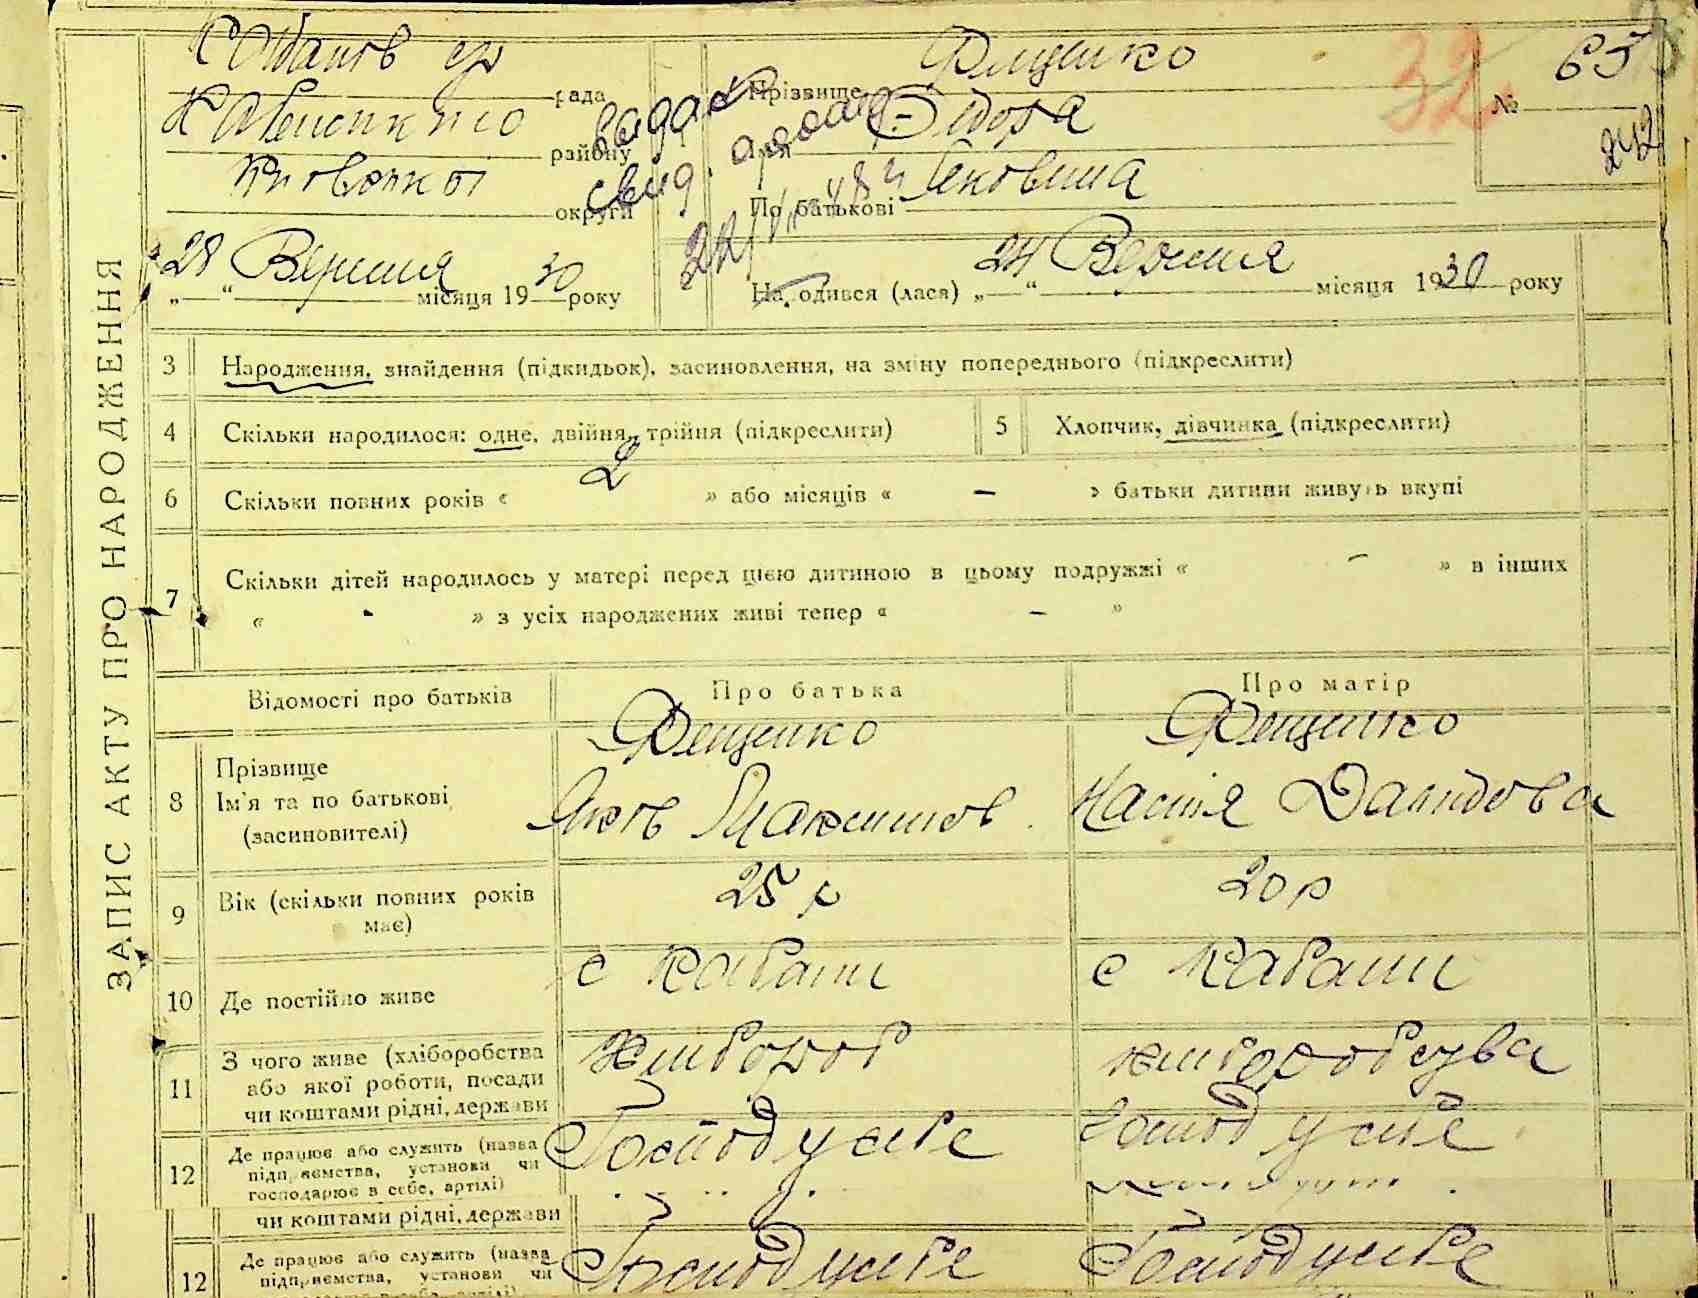 ЗАПИС АКТУ ПРО НАРОДЖЕННЯ
рада
району
округи
28 Вересня місяця 1930 року
видан
свид.
Прізвище
32
№ 65
242
Ім'я Сідора
По батькові Яковина
Народився (лася) „24“ Вересня місяця 1930 року
3 Народження, знайдення (підкидьок), засиновлення, на зміну попереднього (підкреслити)
4 Скільки народилося: одне, двійня, трійня (підкреслити)
5 Хлопчик, дівчинка (підкреслити)
6 Скільки повних років « 2 » або місяців « – » батьки дитини живуть вкупі
7 Скільки дітей народилось у матері перед цією дитиною в цьому подружжі « – » в інших
« - » з усіх народжених живі тепер « – »
Відомості про батьків
Про батька
Про матір
8 Прізвище
Ім'я та по батькові
(засиновителі)
Фещенко
Яков Максимов
Фещенко
Настя Давидова
9 Вік (скільки повних років
має)
25 р
20 р
10 Де постійно живе
с Кабани
с Кабани
11 З чого живе (хліборобства
або якої роботи, посади
чи коштами рідні, держави
Хлибороб
хлиборобсува
12 Де працює або служить (назва
підприємства, установи чи
господарює в себе, артілі)
Господ у себе
Господ у себе
чи коштами рідні, держави
12 Де працює або служить (назва
підприємства, установи чи
Господ у себе
Господ у себе